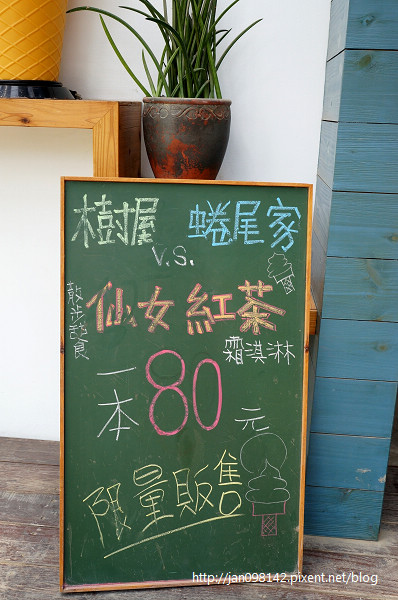 樹屋 V.S. 蜷尾家
散步甜食
仙女紅茶
霜淇淋
一本80元
限量販售
http://jan098142.pixnet.net/blog